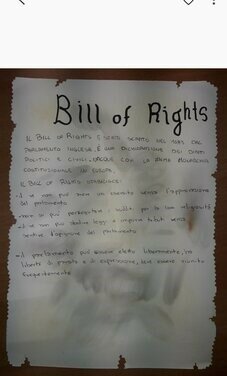 Bill of Rights
IL BILL OF RIGHTS È STATO SCRITTO NEL 1689 DAL
PARLAMENTO INGLESE. È UNA DICHIARAZIONE DEI DIRITTI
POLITICI E CIVILI. NACQUE COSÌ LA PRIMA MONARCHIA
COSTITUZIONALE IN EUROPA.
IL BILL OF RIGHTS STABILISCE:
-il re non può un esercito senza l'approvazione
del parlamento
-non si può perseguitare i sudditi per la loro religiosità
-il re non può abolire leggi o imporre tributi senza
sentire l'opinione del parlamento
-il parlamento può essere eletto liberamente, ha
libertà di parola e di espressione, deve essere riunito
frequentemente